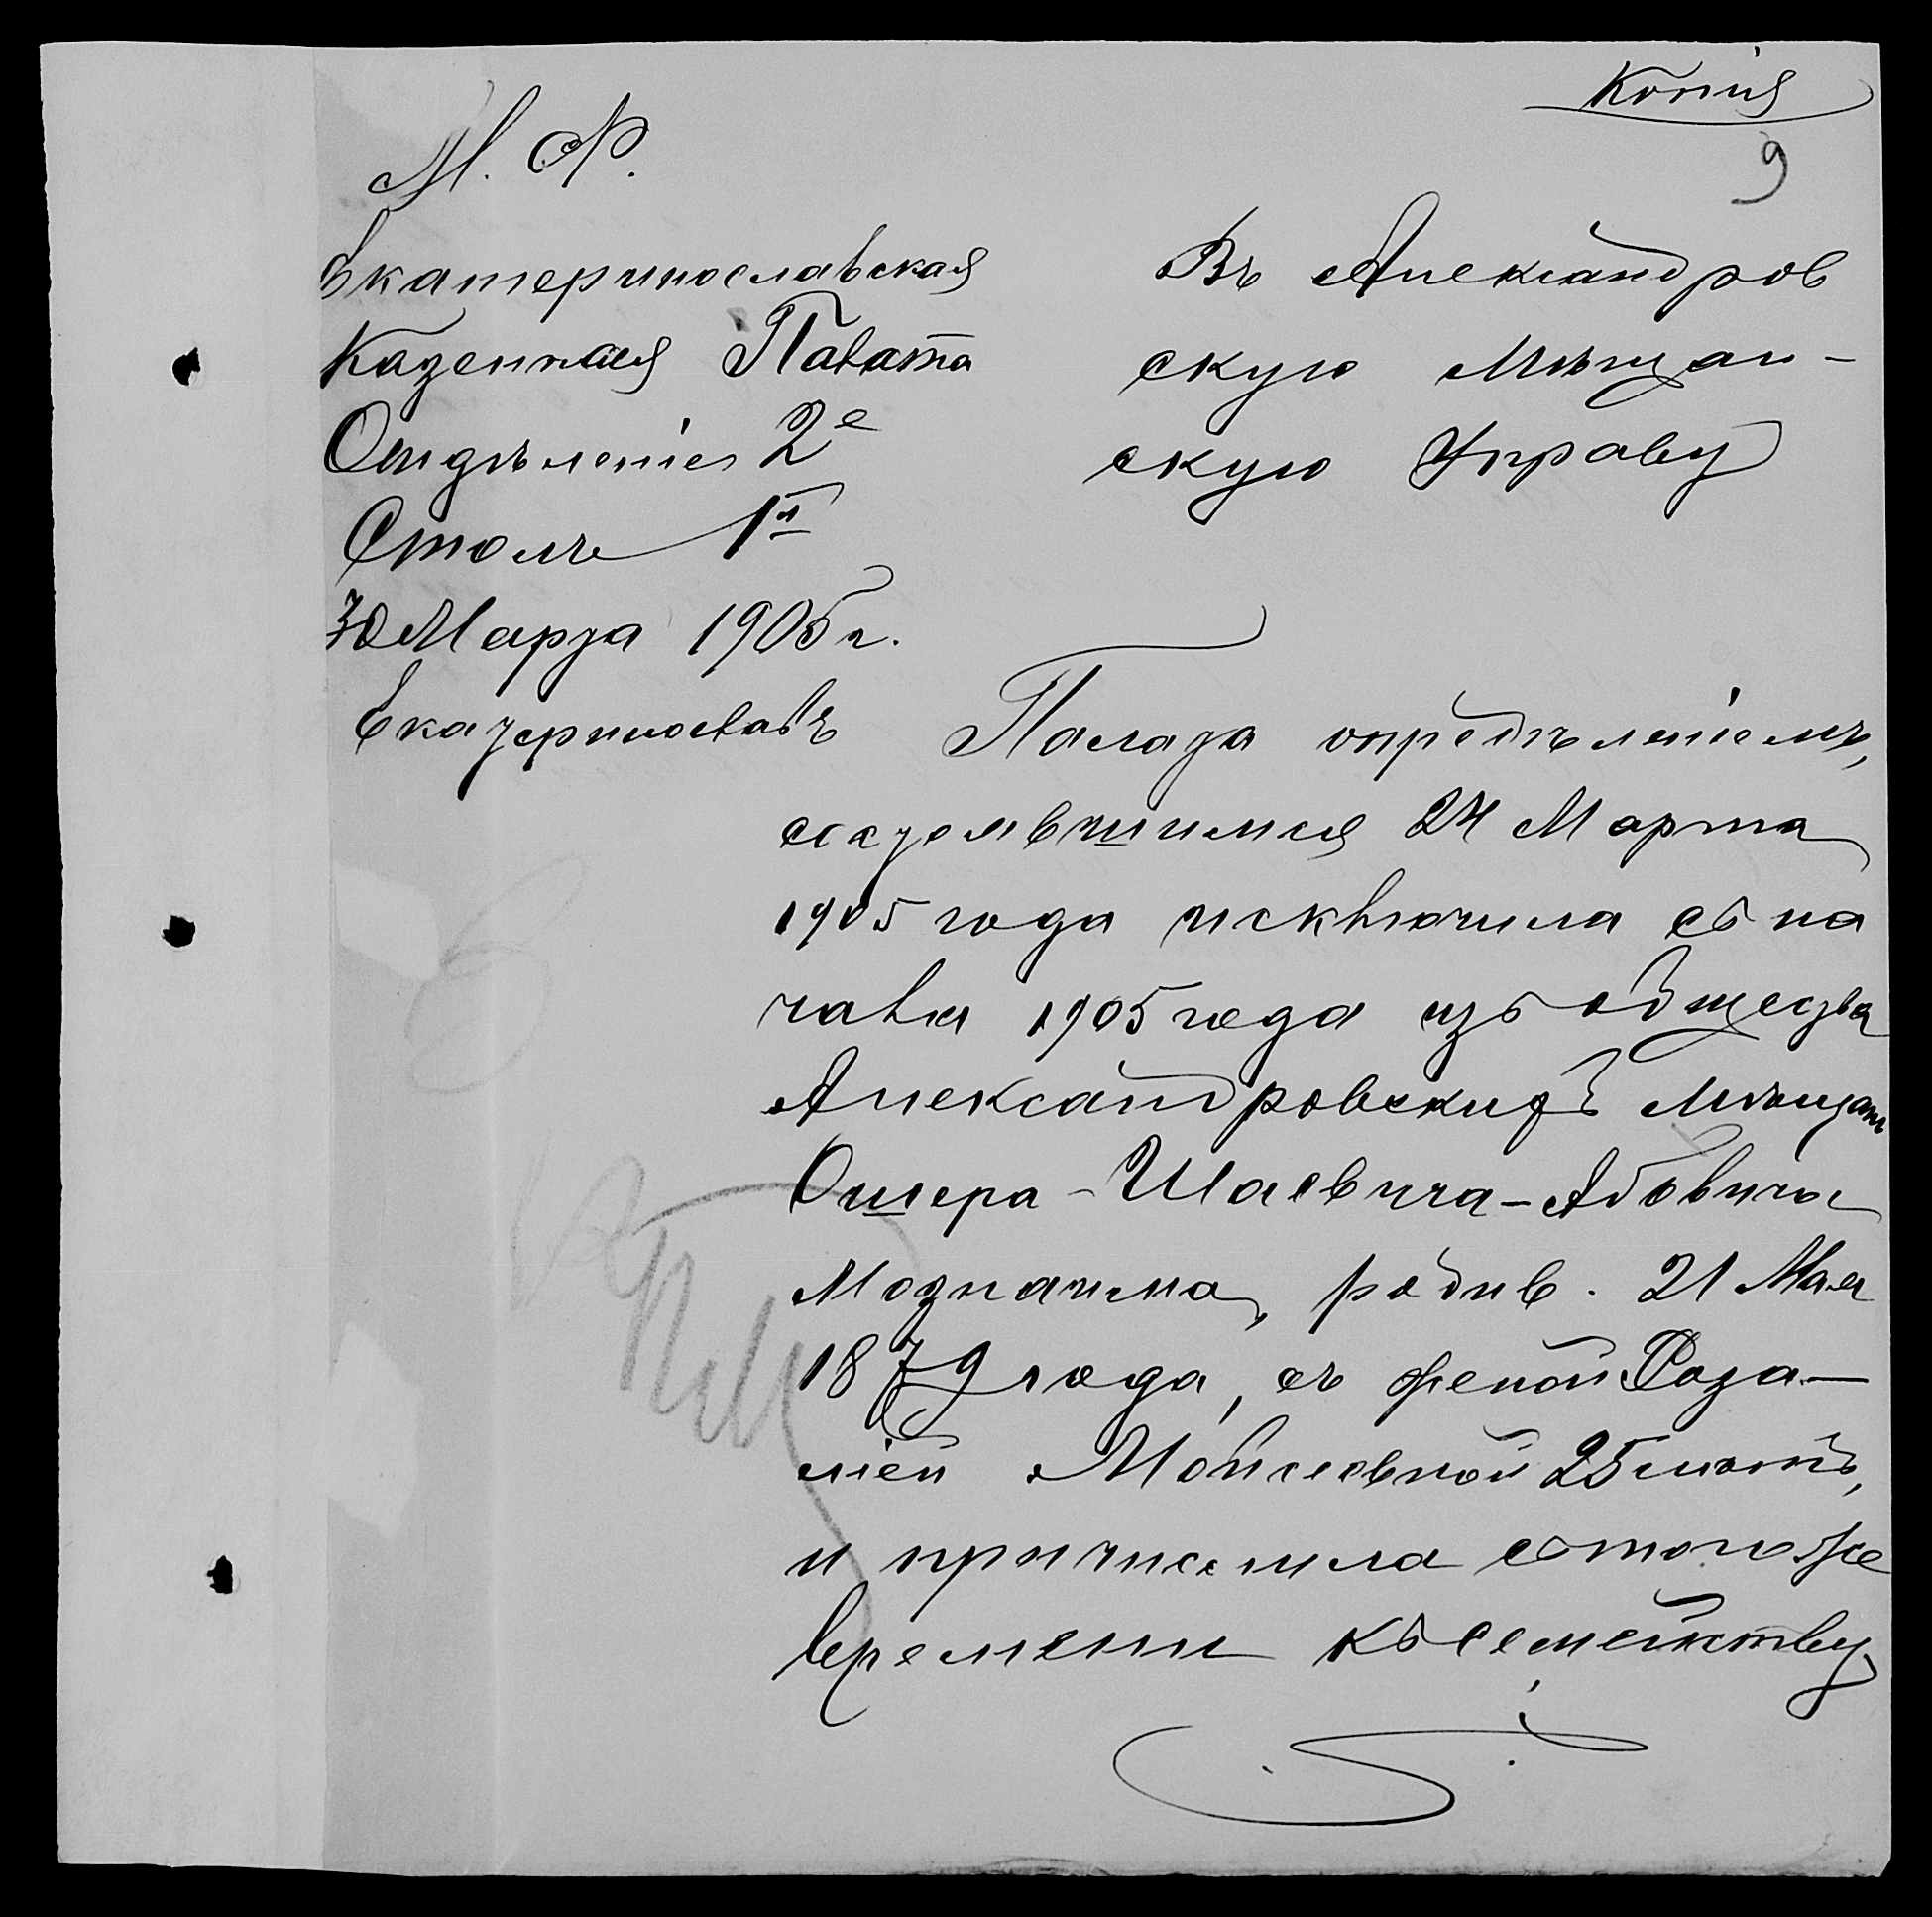 Копія
9
М. Ф.
Екатеринославская
Казенная Палата
Отдѣленіе 2е
Столъ 1й
30 Марта 1905 г.
Екатеринославъ
Въ Александров
скую Мѣщан-
скую Управу
Палата опредѣленіемъ,
состоявшимся 24 Марта
1905 года исключила съ на
чала 1905 года изъ общества
Александровскихъ мѣщанъ
Ошера-Шаевича-Абовича
родив. 21 Мая
1879 года, съ женой Роза-
ліей Мойсеевной 25 лѣтъ,
и причислила съ того же
времени къ семейству